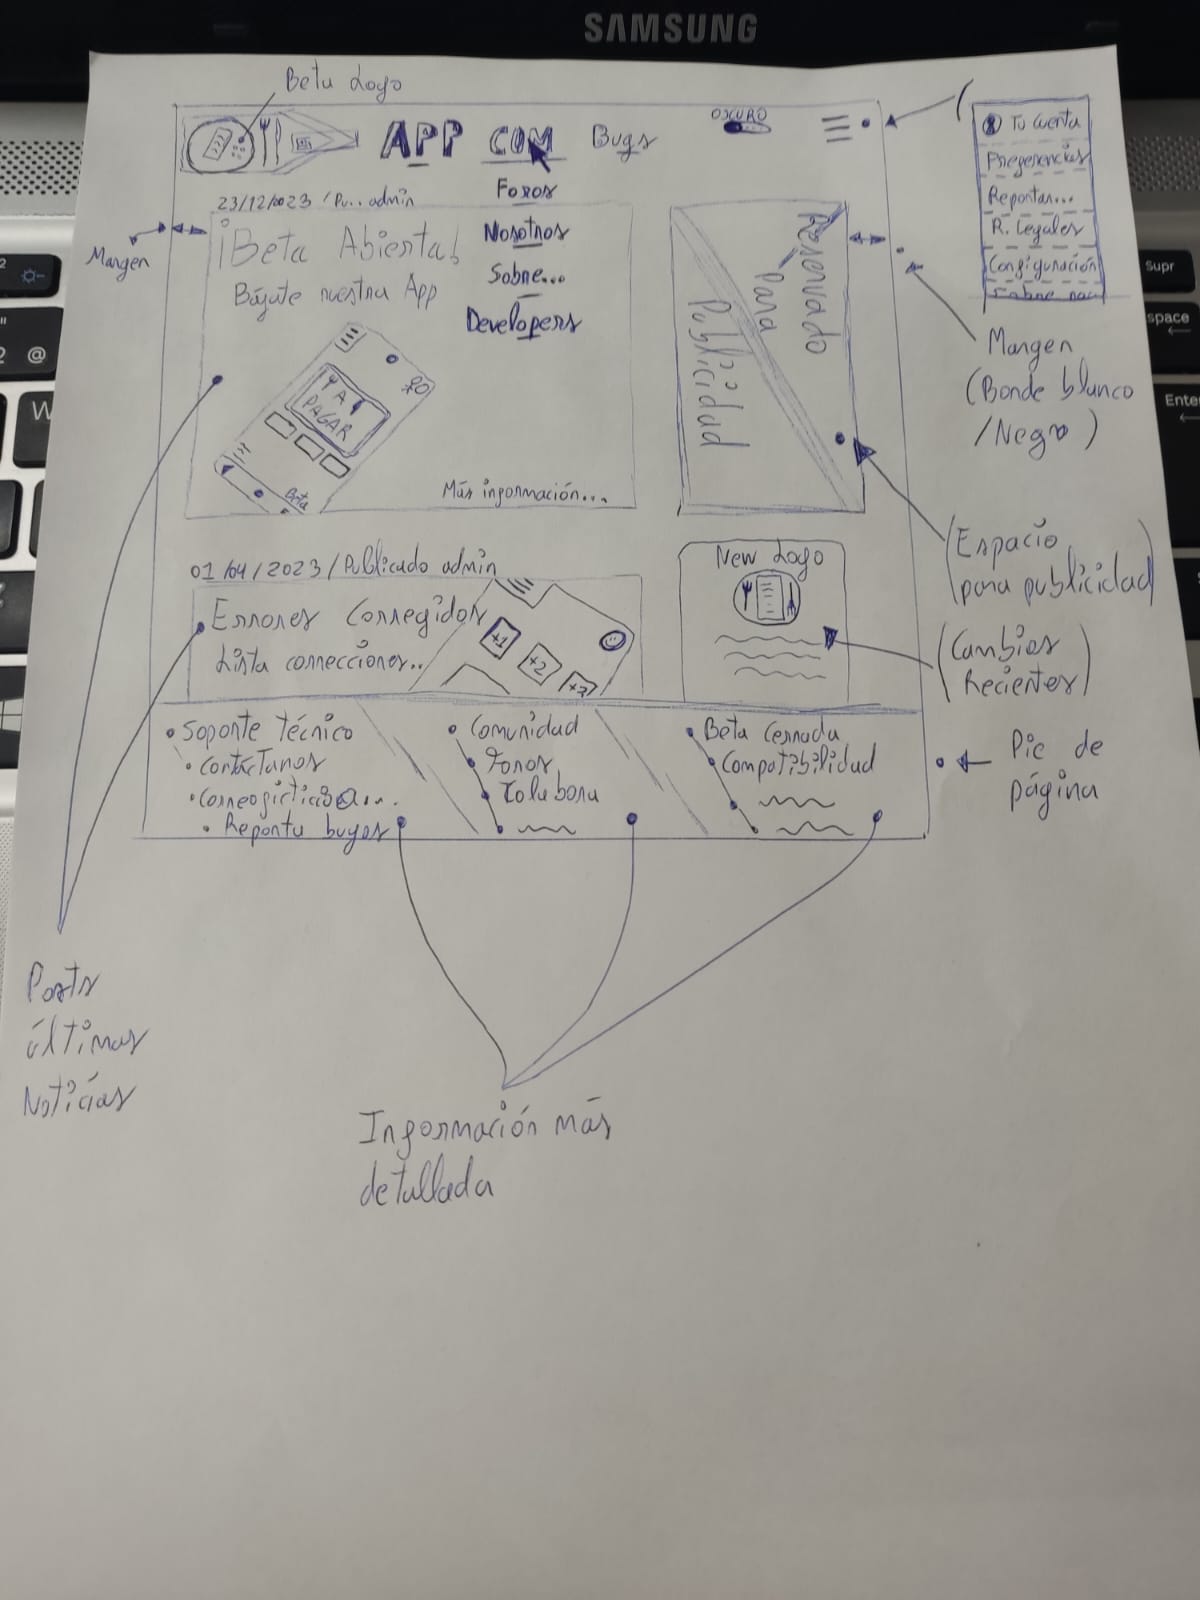 SAMSUNG
Beta Logo
APP COM Bugs
OSCURO
Tu cuenta
Preferencias
Reportar...
R. Legales
Configuración
Sobre
Foros
Nosotros
Sobre...
Developers
23/12/2023 / Pu.. admin
¡Beta Abierta!
Bájate nuestra App
YA
PAGAR
Beta
Más información...
Margen
Reservado
Para
Publicidad
Margen
(Borde blanco
/Negro)
(Espacio
para publicidad)
01/04/2023/Publicado admin
Errores Corregidos
Lista correcciones..
+1
+2
+3
New Logo
(Cambios
Recientes)
• Soporte Técnico
• Contáctanos
• Reporta bugos
• Comunidad
Foros
Colabora
• Beta Cerrada
Compatibilidad
Pie de
página
Posts
últimas
Noticias
Información más
detallada
Supr
space
Enter
2 @
W